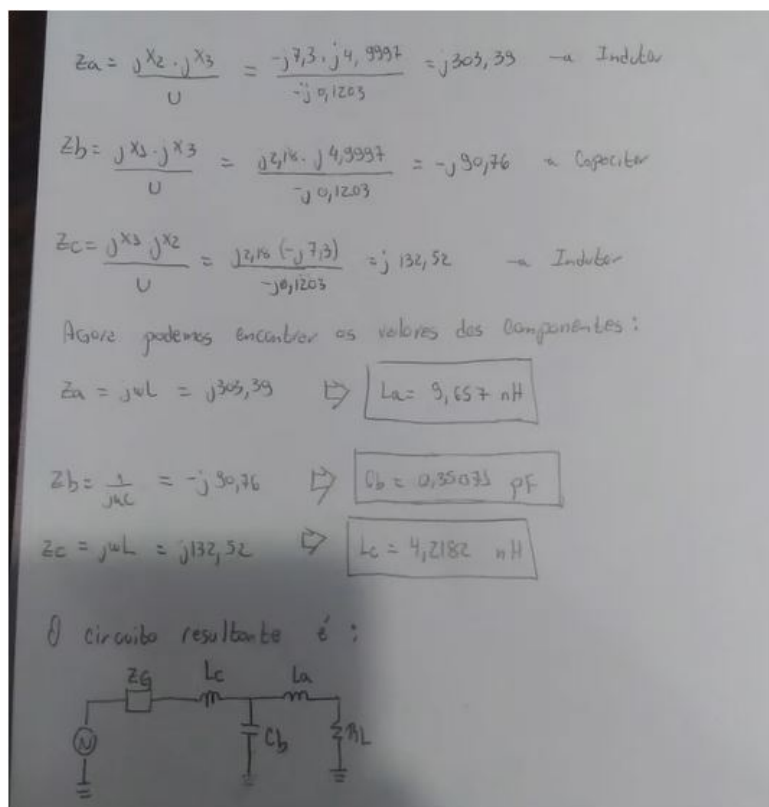 Za = jX2 . jX3 / U = -j7,3 . j4,9997 / -j0,1203 = j303,39 → Indutor
Zb = jX1 . jX3 / U = j2,18 . j4,9997 / -j0,1203 = -j90,76 → Capacitor
Zc = jX1 jX2 / U = j2,18 (-j7,3) / -j0,1203 = j132,52 → Indutor
Agora podemos encontrar os valores dos componentes:
Za = jωL = j303,39 ⇒ La = 9,657 nH
Zb = 1 / jωC = -j90,76 ⇒ Cb = 0,35071 pF
Zc = jωL = j132,52 ⇒ Lc = 4,2182 nH
O circuito resultante é:
ZG Lc La
Cb RL